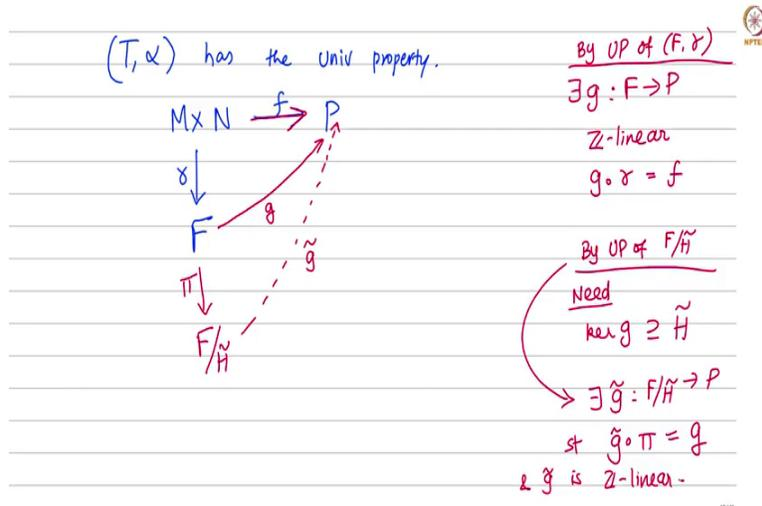 (T, α) has the univ property.
M × N f→ P
γ↓
F
g
g̃
π↓
F/H̃
By UP of (F, γ)
∃ g : F → P
ℤ-linear
g ∘ γ = f
By UP of F/H̃
Need
ker g ⊇ H̃
∃ g̃ : F/H̃ → P
st g̃ ∘ π = g
& g̃ is ℤ-linear.
NPTEL